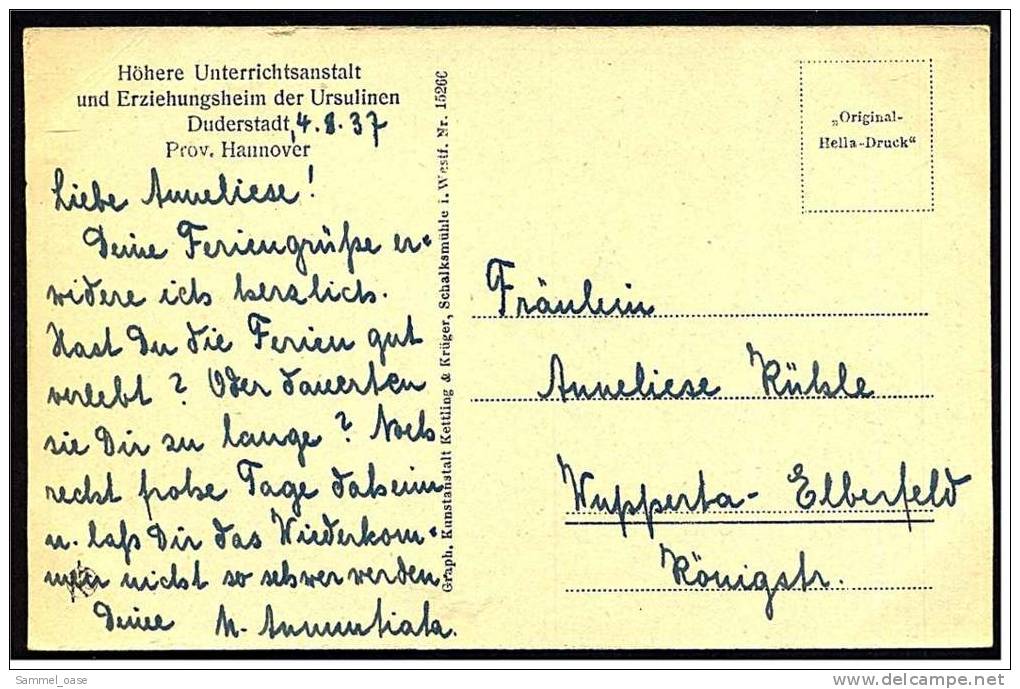 Höhere Unterrichtsanstalt
und Erziehungsheim der Ursulinen
Duderstadt, 4.8.37
Prov. Hannover
Liebe Anneliese!
Deine Feriengrüße er-
widere ich herzlich.
Hast Du die Ferien gut
verlebt? Oder dauerten
sie Dir zu lange? Noch
recht frohe Tage daheim
u. laß Dir das Wiederkom-
men nicht so schwer werden
Deine M. Annuntiata.
Graph. Kunstanstalt Kettling & Krüger, Schalksmühle i. Westf. Nr. 15266
„Original-
Hella-Druck“
Fräulein
Anneliese Rühle
Wupperta- Elberfeld
Königstr.
Sammel_oase
www.delcampe.net